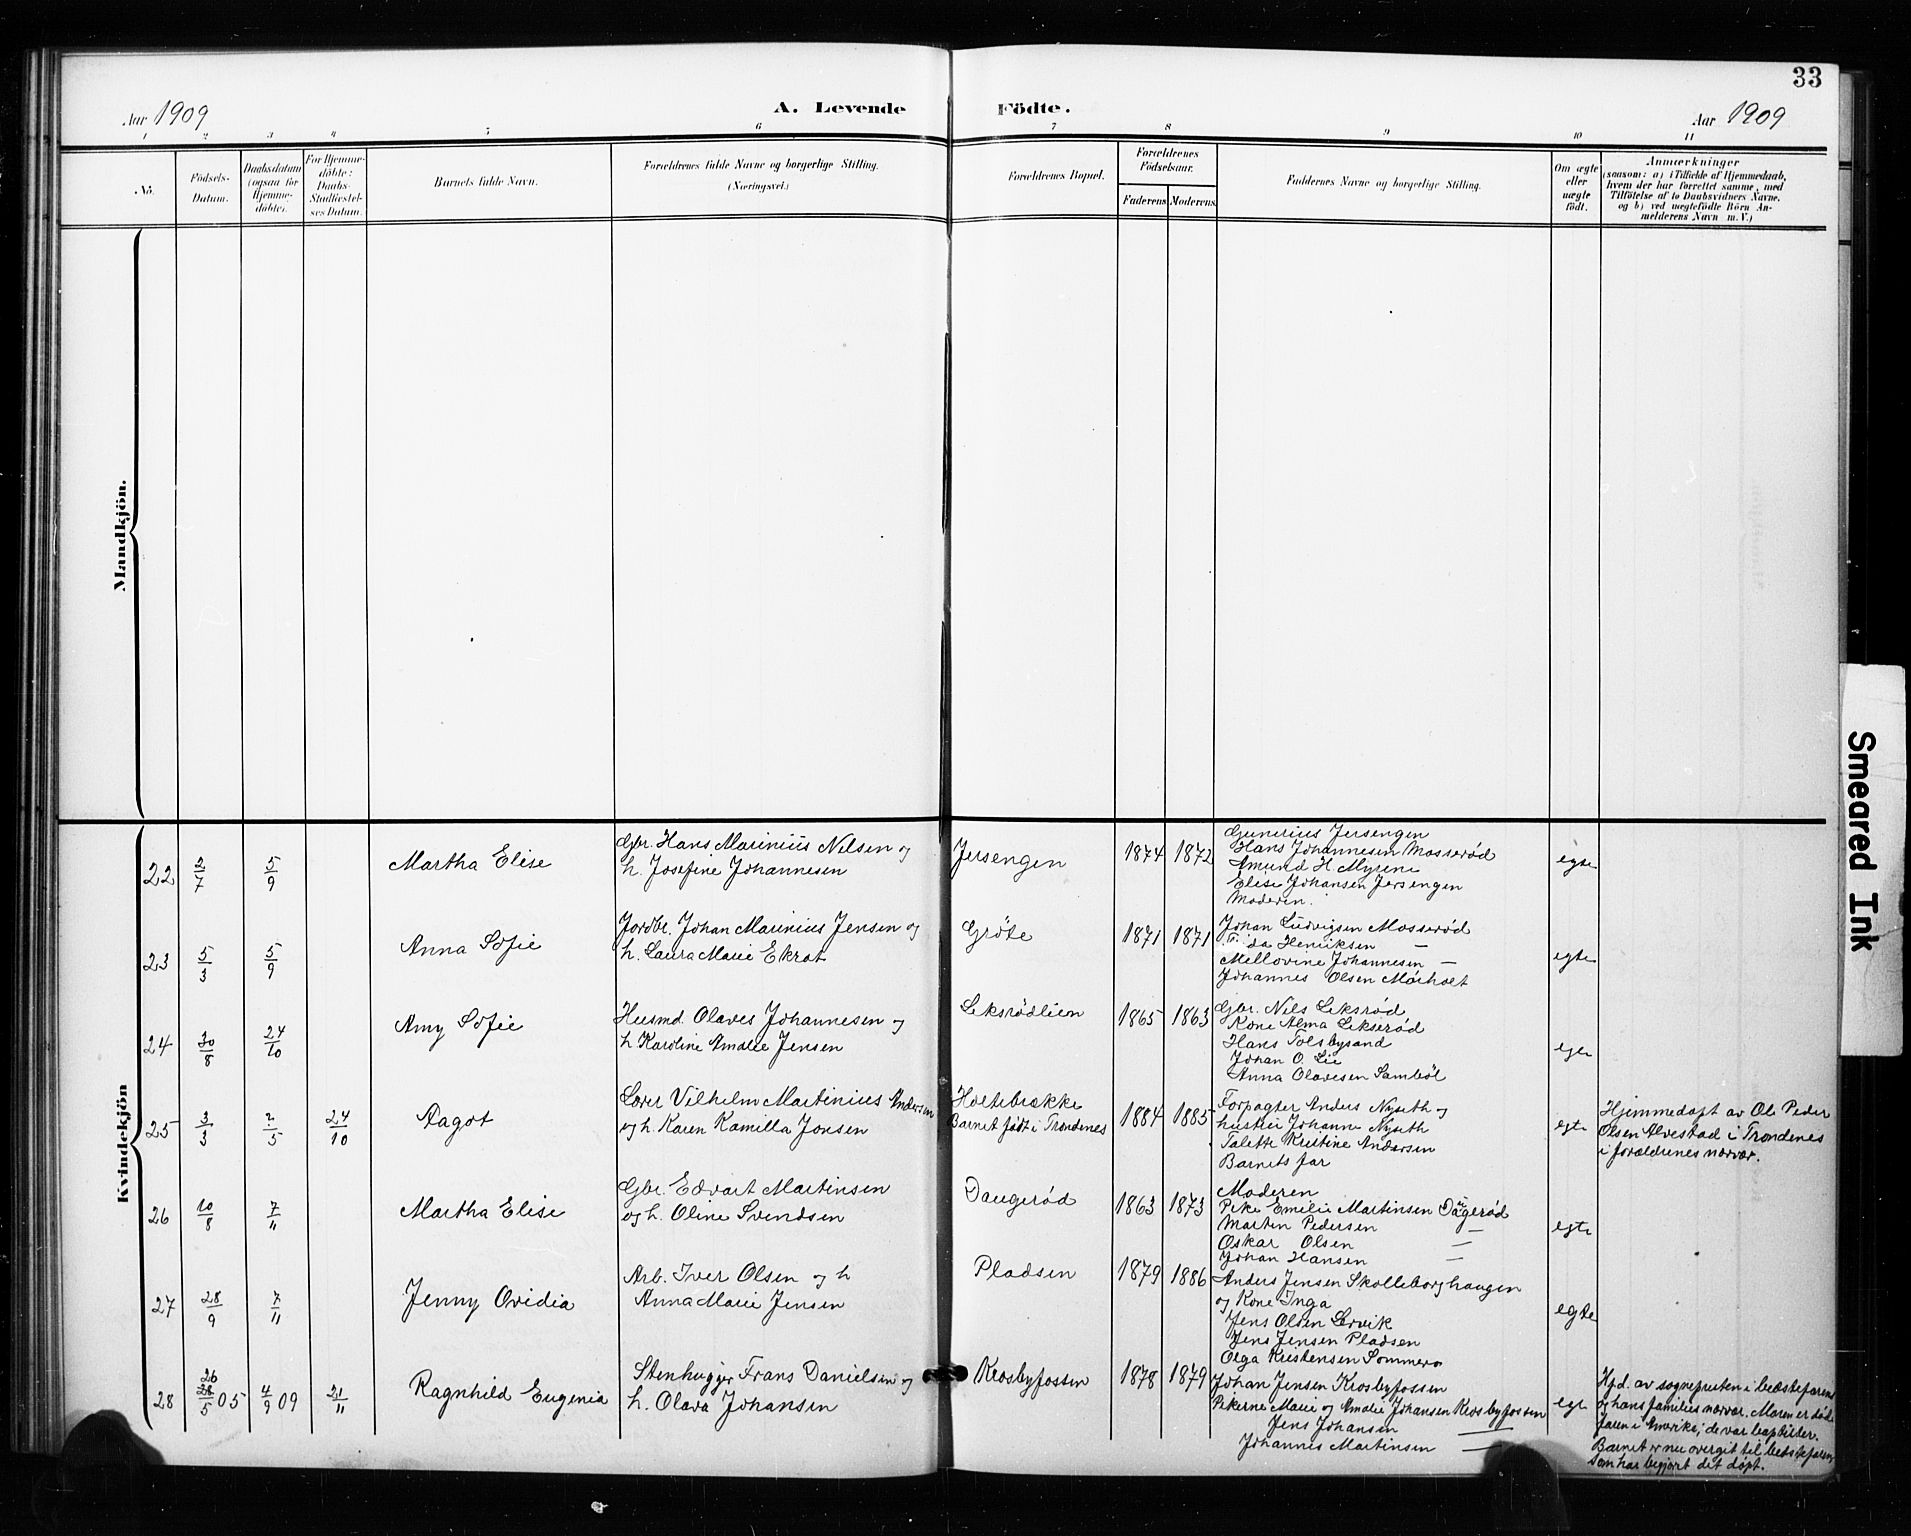 33
Aar 1909
A. Levende Födte.
Aar 1909
1 2 3 4 5 6 7 8 9 10 11
No.
Födsels-Datum.
Daabsdatum (ogsaa for Hjemme-döbte).
For Hjemme-döbte: Daabs-Stadfæstel-ses Datum.
Barnets fulde Navn.
Forældrenes fulde Navne og borgerlige Stilling.
(Næringsvei.)
Forældrenes Bopæl.
Forældrenes Födselsaar.
Faderens Moderens
Faddernes Navne og borgerlige Stilling.
Om ægte eller uægte födt.
Anmærkninger
(saasom: a) i Tilfælde af Hjemmedaab,
hvem der har forrettet samme, med
Tilföielse af to Daabsvidners Navne.
og b) ved uægtefödte Börn An-
melderens Navn m. V.)
Mandkjön.
Kvindekjön
22 2/7 5/9 Martha Elise
Gbr. Hans Marinius Nilsen og
h. Josefine Johannesen
Jersengen 1874 1872
Gunerius Jersengen
Hans Johannesen Mosserød
Amund H. Myrene
Elise Johansen Jersengen
Moderen.
egte
23 5/3 5/9 Anna Sofie
Jordbr. Johan Marinius Jensen og
h. Laura Marie Ekrot
Grøte 1871 1871
Johan Ludvigsen Mosserød
Henriksen —
Mellovine Johannesen —
Johannes Olsen Mørholt
egte
24 30/8 24/10 Amy Sofie
Husmd. Olaves Johannesen og
h Karoline Amalie Jensen
Leksrødlien 1865 1863
Gbr. Nils Leksrød
Kone Alma Lekserød
Hans Tolsbysand
Johan O. Lie
Anna Olavesen Sambøl
egte
25 3/3 2/5 24/10 Aagot
Lærer Vilhelm Martinius Andersen
og h. Karen Kamilla Jonsen
Holtebrække
Barnet født i Trondenes 1884 1885
Forpagter Anders Nyseth og
hustru Johanne Nyseth
Talette Kristine Andersen
Barnets far
egte
Hjemmedøpt av Ole Peder
Olsen Alvestad i Trondenes
i forældrenes nærvær.
26 10/8 7/11 Martha Elise
Gbr. Edvart Martinsen
og h. Oline Svendsen
Daugerød 1863 1873
Moderen
Pike Emilie Martinsen Daugerød
Marten Pedersen —
Oskar Olsen —
Johan Hansen —
egte
27 28/9 7/11 Jenny Ovidia
Arb. Iver Olsen og h
Anna Marie Jensen
Pladsen 1879 1886
Anders Jensen Skolleborghaugen
og Kone Inga
Jens Olsen Lervik
Jens Jensen Pladsen
Olga Kristensen Sommero
egte
28 26/5 05 4/9 09 21/11 Ragnhild Eugenia
Stenhugger Frans Danielsen og
h. Olava Johansen
Krosbyfossen 1878 1879
Johan Jensen Krosbyfossen
Pikerne Marie og Amalie Johansen Krosbyfossen
Jens Johansen —
Johannes Martinsen —
egte
Hjd. av sognepresten i bedstefarens
og hans families nærvær. Moren er død
faren i Amerika; de var baptister.
Barnet er nu overgit til bedstefaren,
som har begjært det døpt.
Smeared Ink